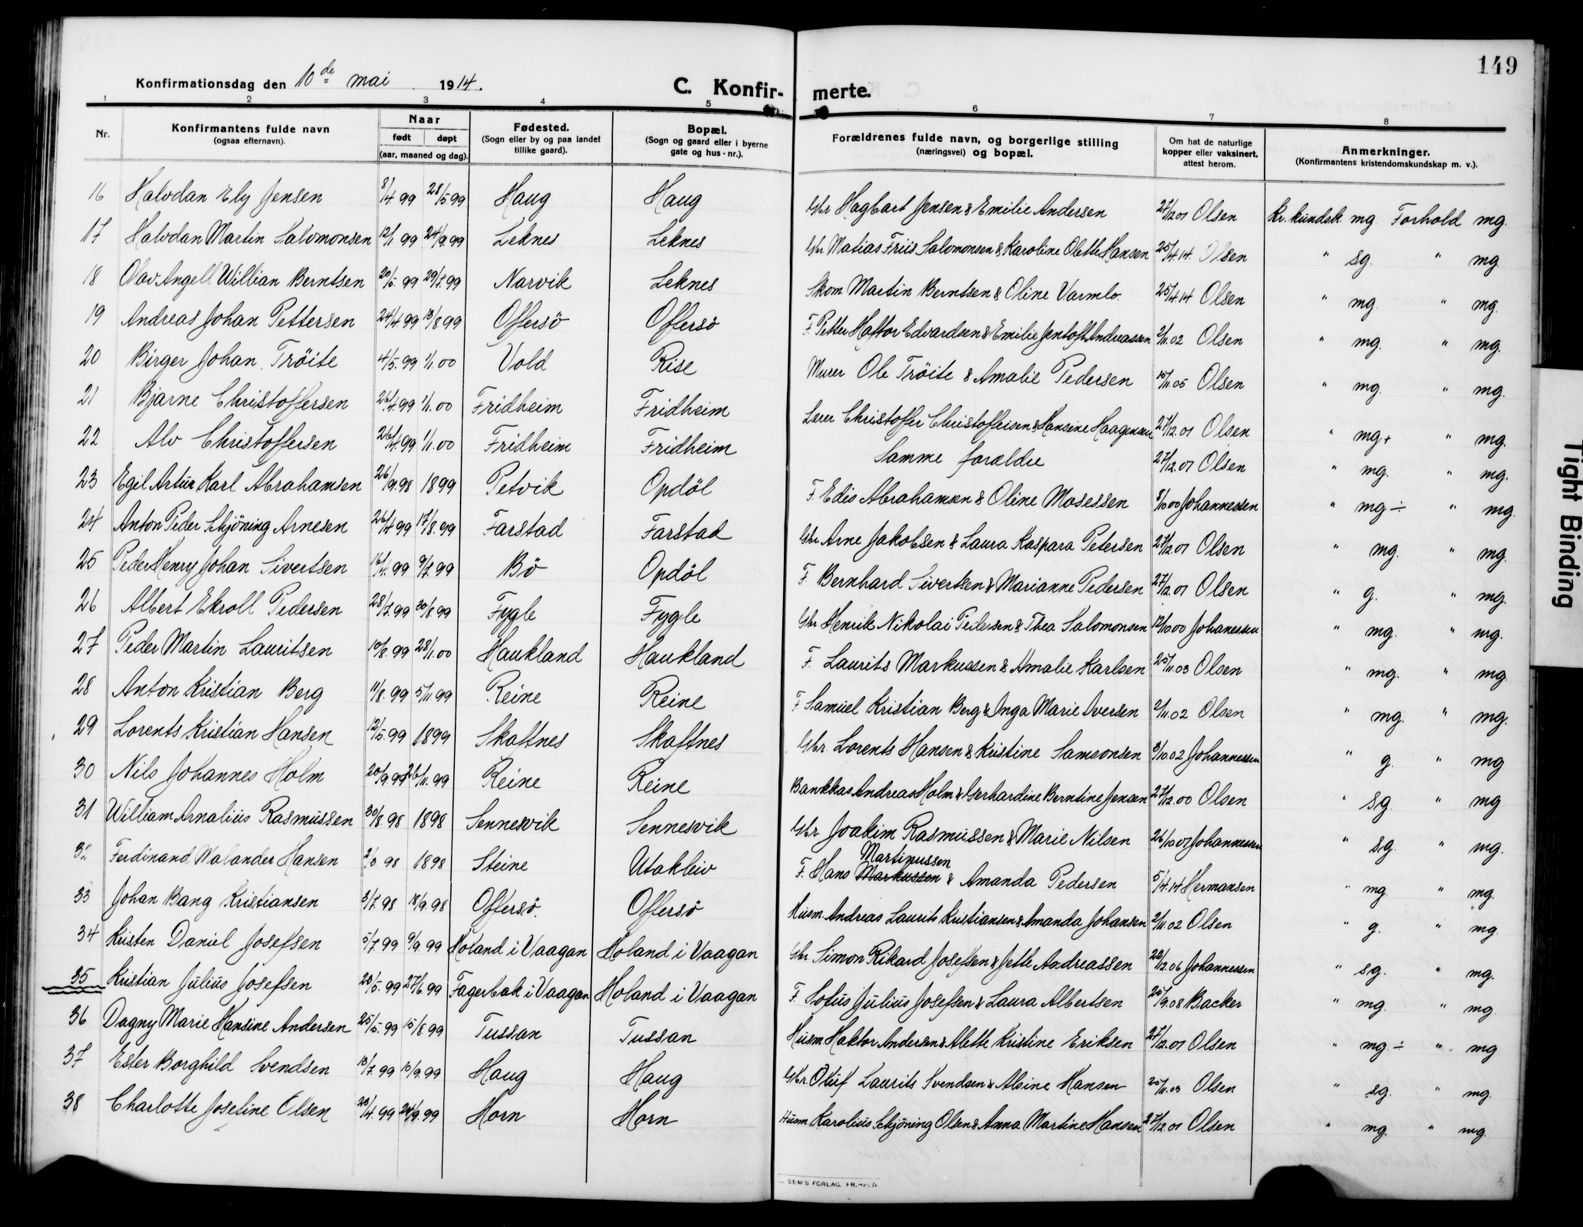 149
Konfirmationsdag den 10de mai 1914.
C. Konfirmerte.
1 2 3 4 5 6 7 8
Nr. | Konfirmantens fulde navn (ogsaa efternavn). | Naar født døpt (aar, maaned og dag). | Fødested. (Sogn eller by og paa landet tillike gaard). | Bopæl. (Sogn og gaard eller i byerne gate og hus-nr.). | Forældrenes fulde navn, og borgerlige stilling (næringsvei) og bopæl. | Om hat de naturlige kopper eller vaksinert. attest herom. | Anmerkninger. (Konfirmantens kristendomskundskap m. v.).
16 Halvdan Ely Jensen 8/4 99 28/5 99 Haug Haug Gbr Hagbart Jensen & Emilie Andersen 27/12 01 Olsen Kr. kundsk mg Forhold mg.
17 Halvdan Martin Salomonsen 12/1 99 24/9 99 Leknes Leknes Gbr Matias Friis Salomonsen & Karoline Olette Hansen 25/4 14 Olsen " sg. " mg.
18 Olav Angell Willian Berntsen 20/5 99 29/7 99 Narvik Leknes Skom Martin Berntsen & Oline Varmlo 25/4 14 Olsen " mg. " mg.
19 Andreas Johan Pettersen 24/4 99 13/8 99 Offersö Offersö F. Petter Haftor Edvardsen & Emilie Jentoft Andreassen 2/11 02 Olsen " mg. " mg.
20 Birger Johan Tröite 4/5 99 1/1 00 Vold Rise Murer Ole Tröite & Amalie Pedersen 15/11 05 Olsen " mg. " mg.
21 Bjarne Christoffersen 26/4 99 1/1 00 Fridheim Fridheim Lærer Christoffer Christoffersen & Hansine Haagensen 27/12 01 Olsen " mg+ " mg.
22 Alv Christoffersen 26/4 99 1/1 00 Fridheim Fridheim Samme forældre 27/12 01 Olsen " mg. " mg.
23 Egil Artur Karl Abrahamsen 26/9 98 1899 Petvik Opdöl F. Edis Abrahamsen & Oline Mosessen 5/10 00 Johannessen " mg÷ " mg.
24 Anton Peder Skjöning Arnesen 26/4 99 17/8 99 Farstad Farstad Gbr Arne Jakobsen & Laura Kaspara Petersen 27/12 01 Olsen " mg. " mg.
25 Peder Henry Johan Sivertsen 16/4 99 9/7 99 Bö Opdöl F Bernhard Sivertsen & Marianne Pedersen 27/12 01 Olsen " g. " mg.
26 Albert Ekroll Pedersen 28/7 99 20/8 99 Fygle Fygle Gbr Henrik Nikolai Pedersen & Thea Salomonsen 12/10 00 Johannessen " mg. " mg.
27 Peder Martin Lauritsen 10/8 99 28/1 00 Haukland Haukland F. Laurits Markussen & Amalie Karlsen 25/11 03 Olsen " mg. " mg
28 Anton Kristian Berg 11/8 99 5/11 99 Reine Reine F Samuel Kristian Berg & Inga Marie Iversen 2/11 02 Olsen " mg. " mg.
29 Lorents Kristian Hansen 12/5 99 1899 Skaftnes Skaftnes Gbr Lorents Hansen & Kristine Samsonsen 3/10 02 Johannessen " g. " mg
30 Nils Johannes Holm 20/9 99 26/11 99 Reine Reine Bankkas Andreas Holm & Gerhardine Berntine Jensen 27/12 00 Olsen " sg " mg
31 William Arnalius Rasmussen 30/8 98 1898 Sennesvik Sennesvik Gbr Joakim Rasmussen & Marie Nilsen 26/10 07 Johannessen " sg. " mg.
32 Ferdinand Walander Hansen 98 1898 Steine Utakleiv F. Hans Markussen Martinussen & Amanda Pedersen 5/4 14 Hermansen " mg " mg.
33 Johan Bang Kristiansen 3/7 98 18/9 98 Offersö. Offersö Husm Andreas Laurits Kristiansen & Amanda Johansen 2/11 02 Olsen " g. " mg
34 Kristen Daniel Josefsen 5/7 99 9/9 99 Holand i Vaagan Holand i Vaagan Gbr. Simon Rikard Josefsen & Jette Andreassen 22/12 06 Johannessen " sg. " mg.
35 Kristian Julius Josefsen 20/5 99 27/6 99 Fagerbak i Vaagan Holand i Vaagan F. Sofus Julius Josefsen & Laura Albertsen 25/9 08 Backer " mg " mg
36 Dagny Marie Hansine Andersen 25/5 99 15/8 99 Tussan Tussan Husm Haktor Andersen & Alette Kristine Eriksen 27/12 01 Olsen " mg÷ " mg
37 Ester Borghild Svendsen 13/7 99 10/9 99 Haug Haug Gbr. Oluf Laurits Svendsen & Alsine Hansen 25/11 03 Olsen " sg. " mg.
38 Charlotte Joseline Olsen 20/4 99 24/9 99 Horn Horn Husm Karolius Skjöning Olsen & Anna Martine Hansen 27/12 01 Olsen " mg. " mg.
SEM'S FORLAG,
Tight Binding